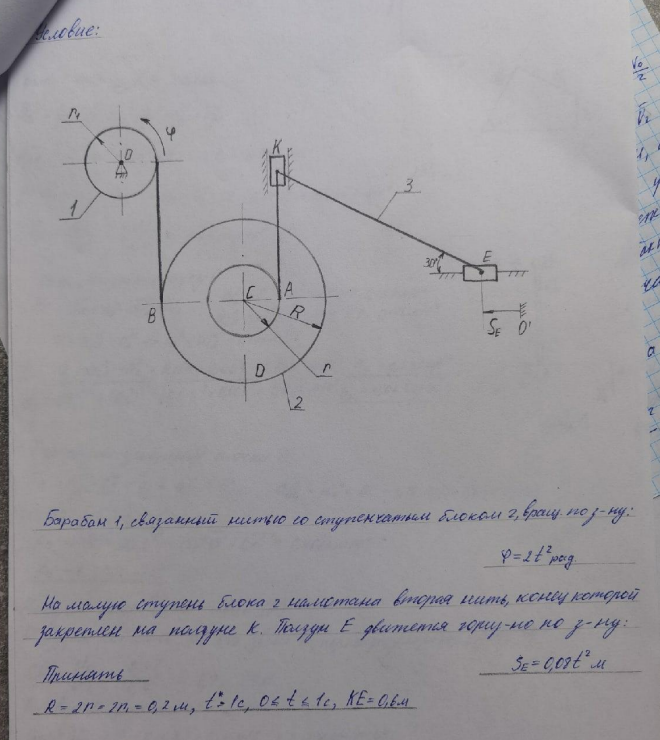 Условие:
r₁
O
φ
K
1
3
30°
E
C
A
B
R
S_E
O'
D
r
2
Барабан 1, связанный нитью со ступенчатым блоком 2, вращ. по з-ну:
φ = 2t² рад.
На малую ступень блока 2 намотана вторая нить, конец которой
закреплен на ползуне К. Ползун Е движется гориз-но по з-ну:
Принять
S_E = 0,08t² м
R = 2r = 2r₁ = 0,2 м, t* = 1c, 0 ≤ t ≤ 1c, KE = 0,6м